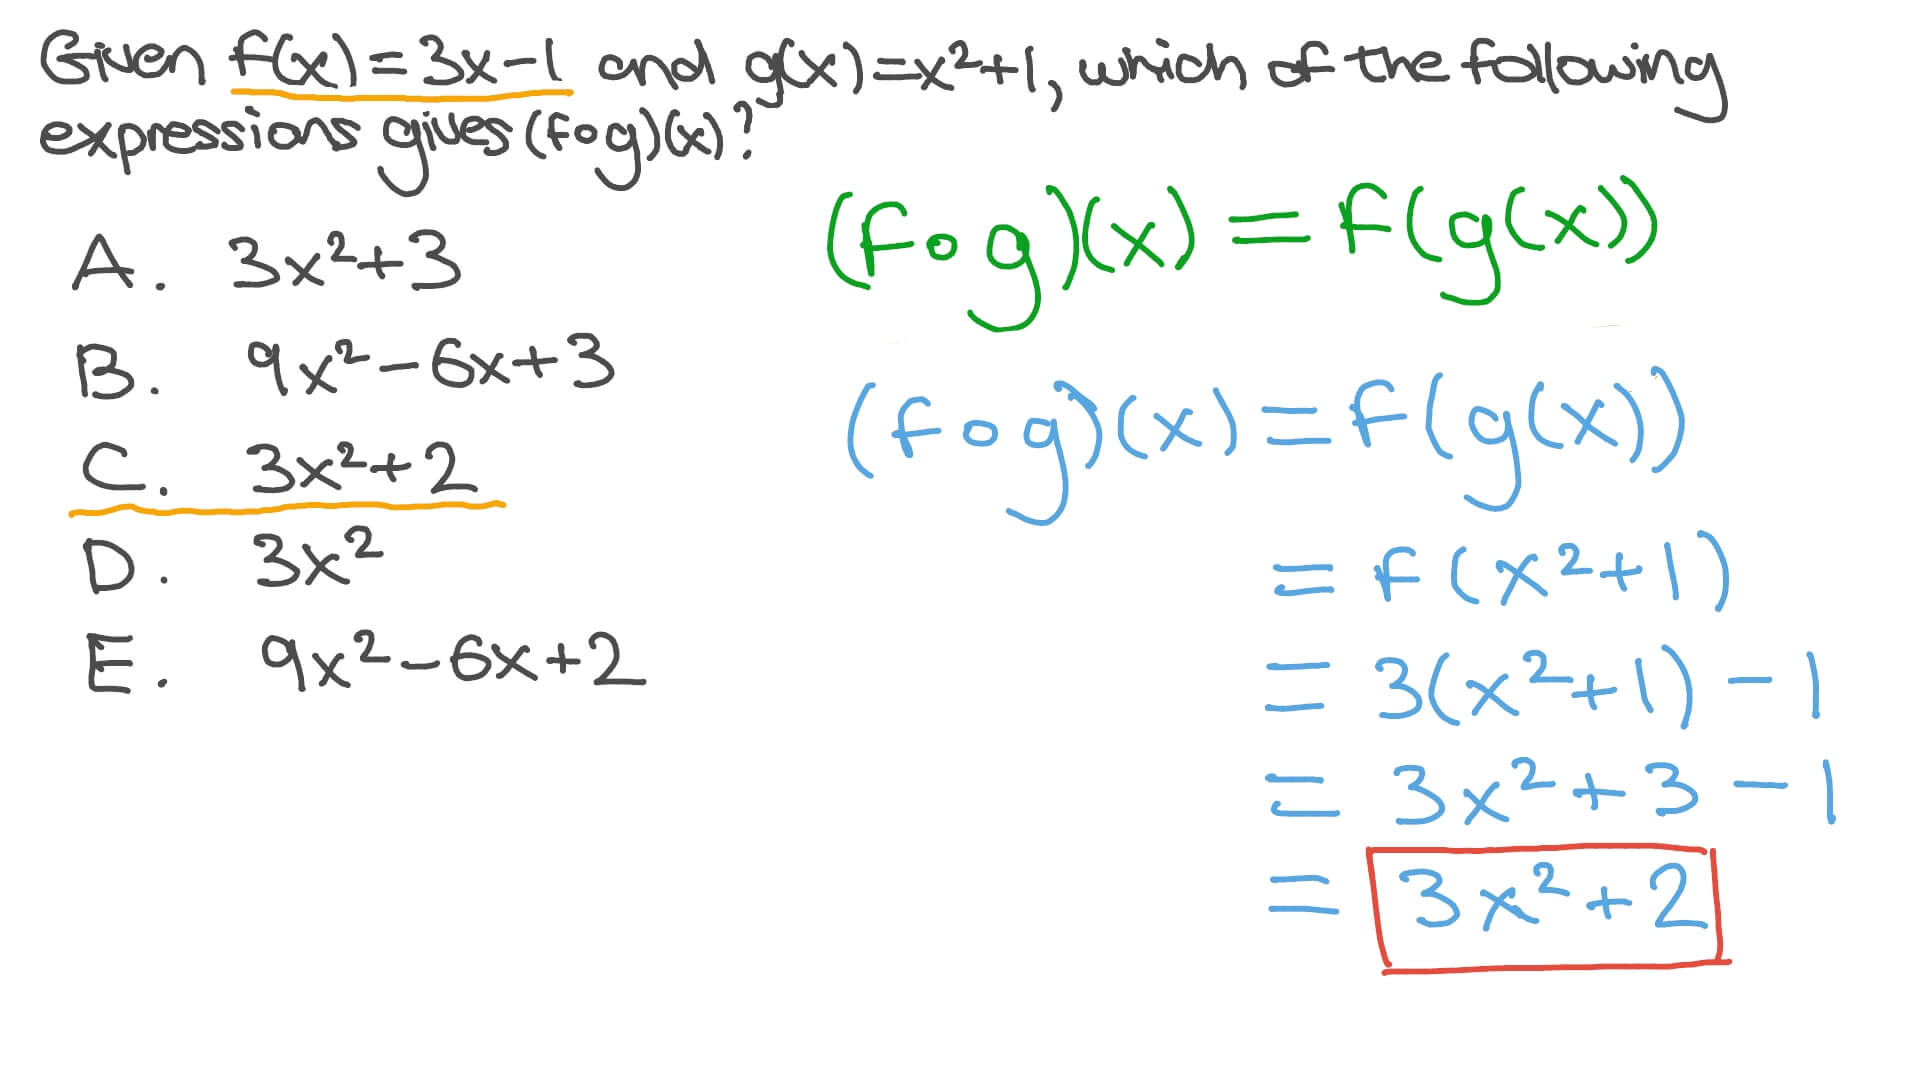 Given f(x)=3x-1 and g(x)=x²+1, which of the following
expressions gives (fog)(x)?
A. 3x²+3
B. 9x²-6x+3
C. 3x²+2
D. 3x²
E. 9x²-6x+2
(fog)(x) = f(g(x))
(fog)(x) = f(g(x))
= f(x²+1)
= 3(x²+1) - 1
= 3x² + 3 - 1
= 3x² + 2